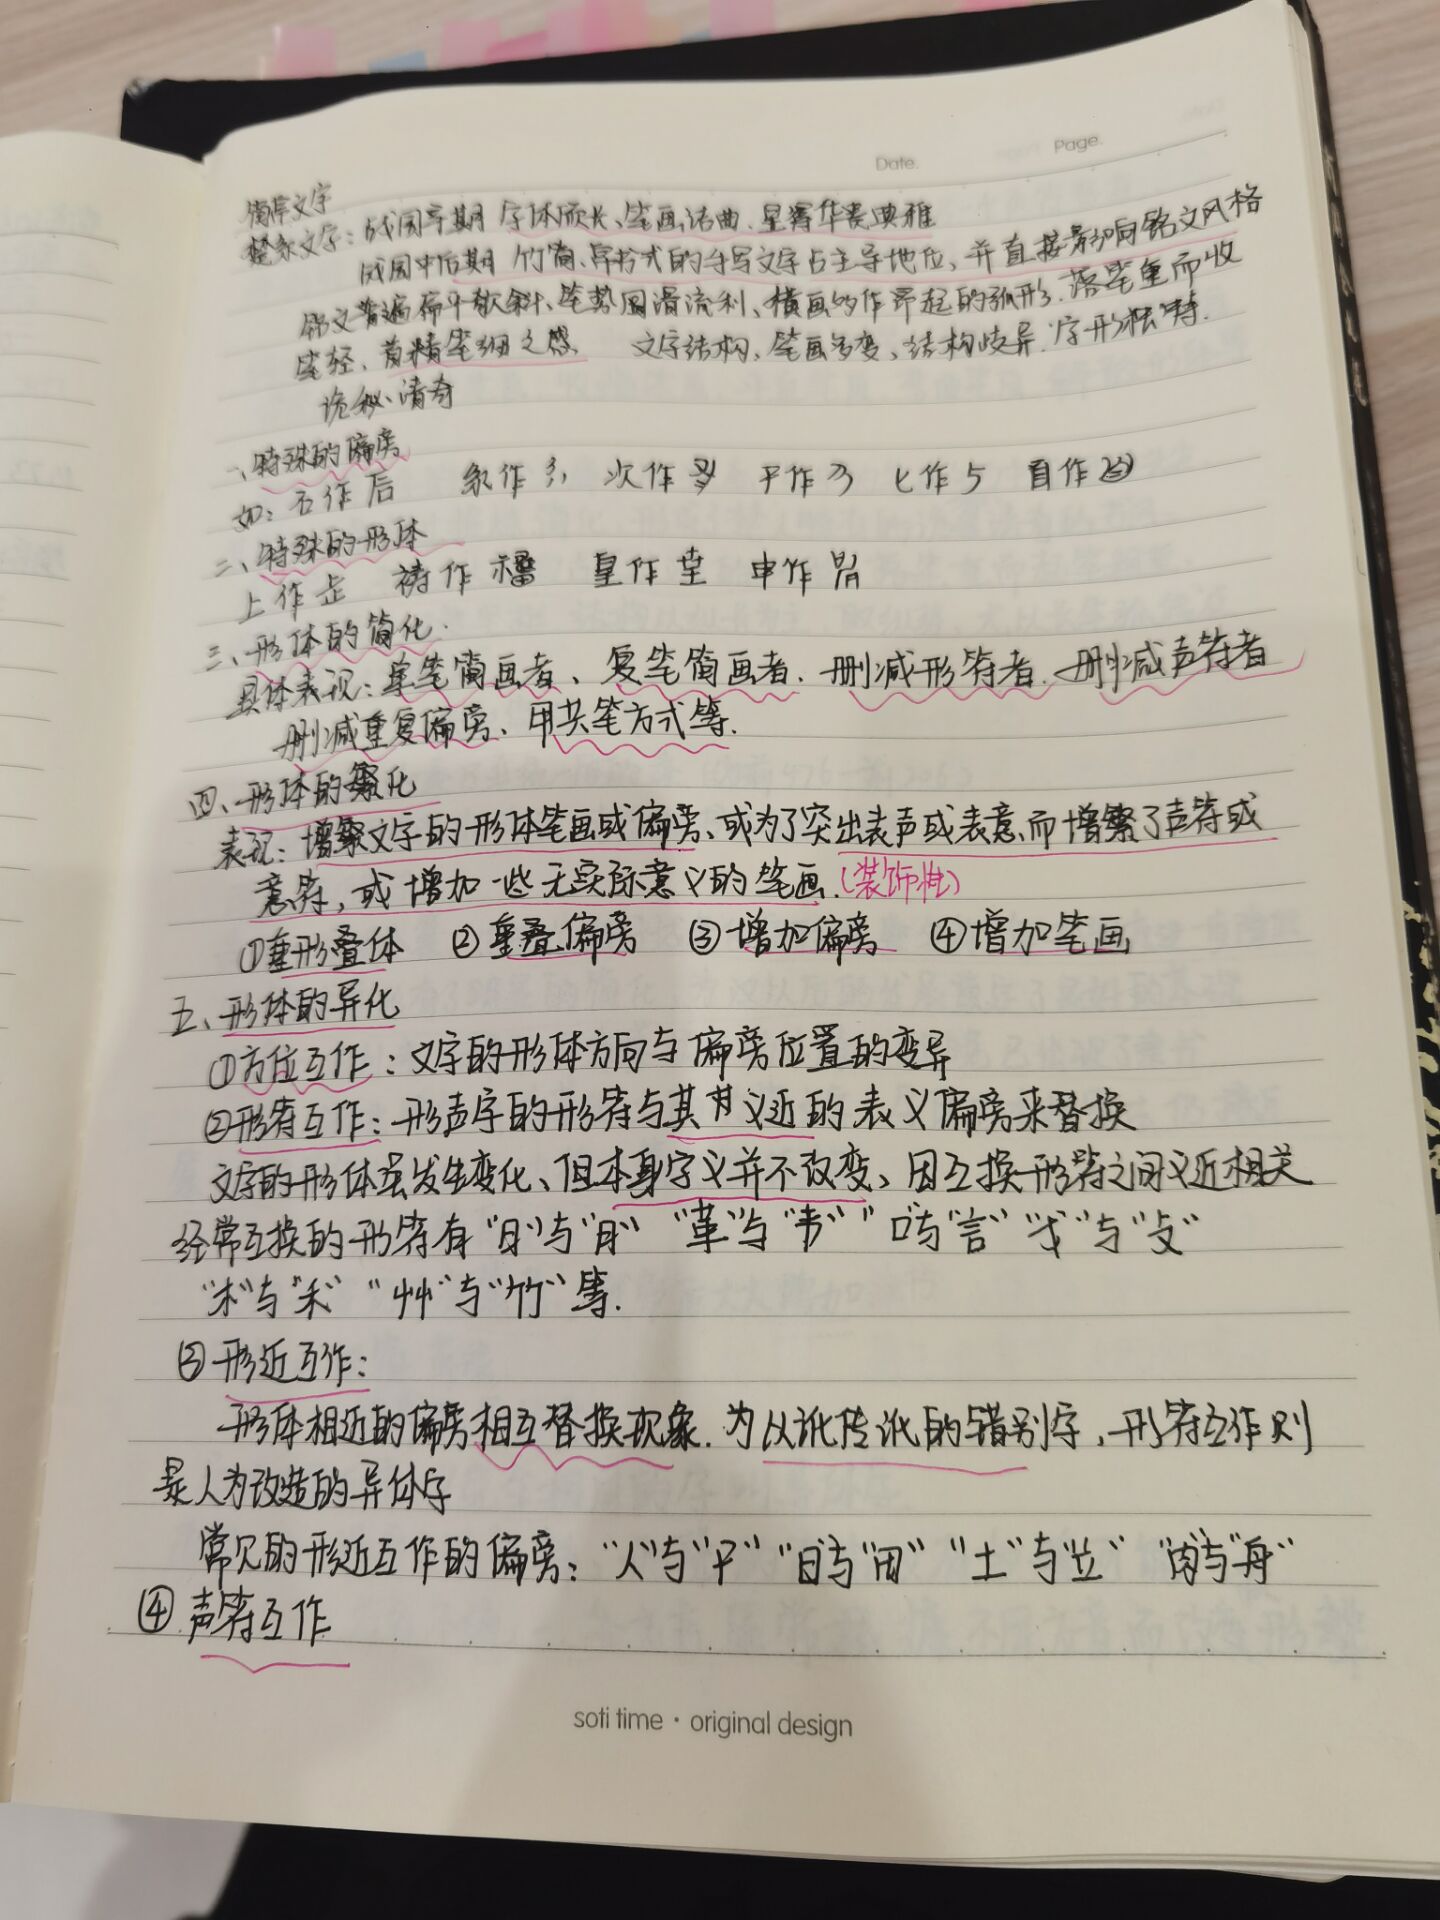 Date. Page.
简帛文字
楚系文字：战国早期 字体颀长、笔画诘曲，呈奢华贵典雅
战国中后期 竹简、帛书式的手写文字占主导地位，并直接影响铭文风格
铭文普遍扁平欹斜、笔势圆滑流利、横画多作昂起的弧形，落笔重而收
笔轻、首精笔细之感 文字结构，笔画多变，结构歧异，字形独特．
诡秘、清奇
一、特殊的偏旁
如：石作后 作 次作 作 七作 作
二、特殊的形体
上作 作 皇作 作
三、形体的简化．
具体表现：单笔简画者、复笔简画者．删减形符者．删减声符者
删减重复偏旁、用共笔方式等．
四、形体的繁化
表现：增繁文字的形体笔画或偏旁、或为了突出表声或表意，而增繁了声符或
意符，或增加一些无实际意义的笔画．（装饰性）
①重形叠体 ②重叠偏旁 ③增加偏旁 ④增加笔画
五、形体的异化
①方位互作：文字的形体方向与偏旁位置的变异
②形符互作：形声字的形符与其义近的表义偏旁来替换
文字的形体虽发生变化、但本身字义并不改变、因互换形符之间义近相关
经常互换的形符有“日”与“月” “革”与“韦” “口”与“言” “戈”与“攴”
“木”与“禾” “艸”与“竹”等．
③形近互作：
形体相近的偏旁相互替换现象．为以讹传讹的错别字，形符互作则
是人为改造的异体字
常见的形近互作的偏旁：“人”与“尸” “日”与“田” “土”与“立” “肉”与“舟”
④声符互作
soti time · original design